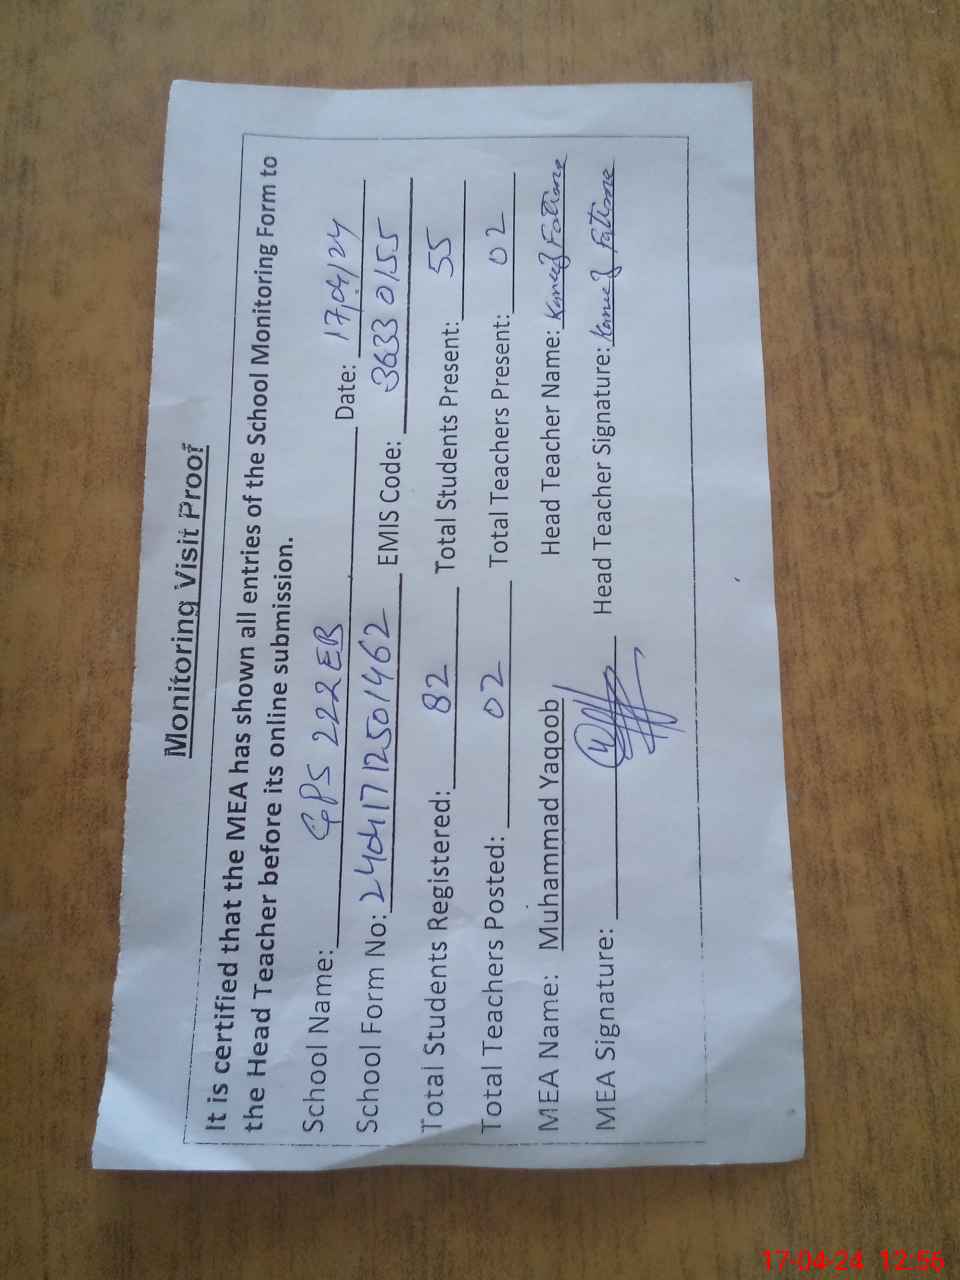 Monitoring Visit Proof
It is certified that the MEA has shown all entries of the School Monitoring Form to
the Head Teacher before its online submission.
School Name: GPS 222 EB Date: 17/04/24
School Form No: 240417 12501462 EMIS Code: 3633 0155
Total Students Registered: 82 Total Students Present: 55
Total Teachers Posted: 02 Total Teachers Present: 02
MEA Name: Muhammad Yaqoob Head Teacher Name: Kaneez Fatima
MEA Signature: Head Teacher Signature: Kaneez Fatima
17-04-24 12:56